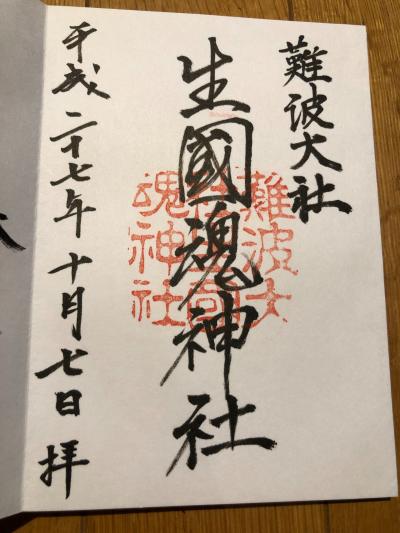 難波大社
生國魂神社
平成二十七年十月七日拝
難波大
社生國
魂神社